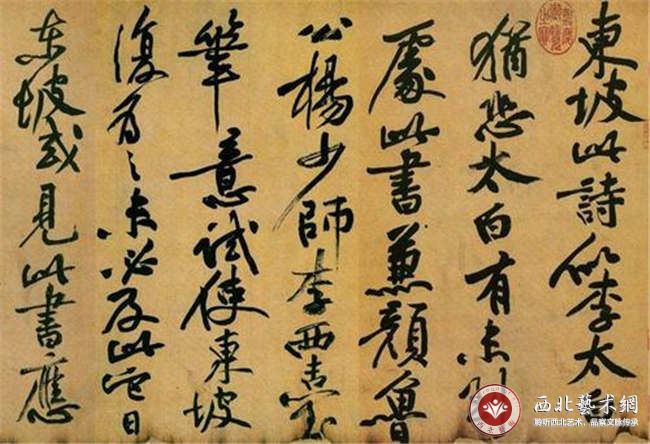 東坡此詩似李太白
猶恐太白有未到
處此書兼顏魯
公楊少師李西臺
筆意試使東坡
復為之未必及此它日
東坡或見此書應
西北藝術網
聆听西北艺术、品察文脉传承